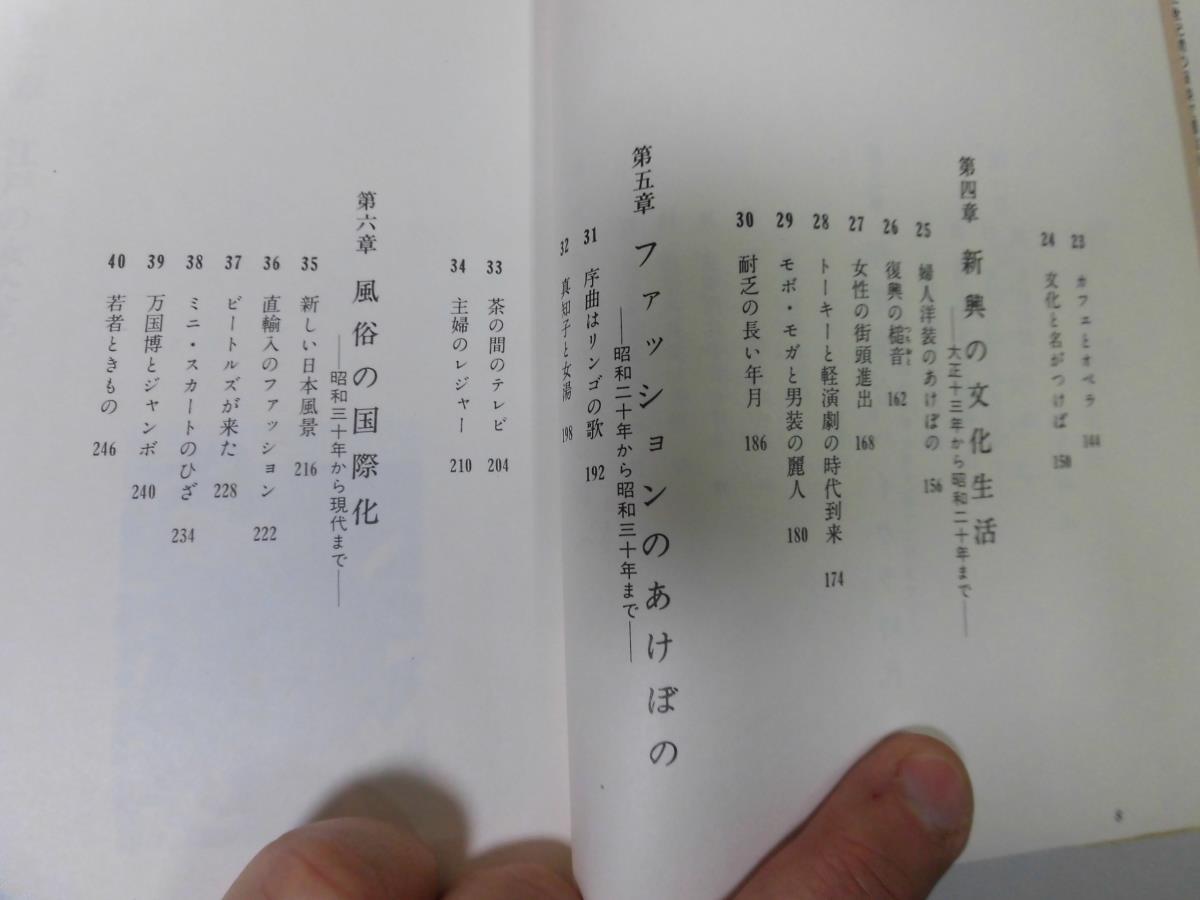 23 カフェとオペラ 144
24 文化と名がつけば 150
第四章 新興の文化生活
——大正十三年から昭和二十年まで——
25 婦人洋装のあけぼの 156
26 復興の槌音 162
つちおと
27 女性の街頭進出 168
28 トーキーと軽演劇の時代到来 174
29 モボ・モガと男装の麗人 180
30 耐乏の長い年月 186
第五章 ファッションのあけぼの
——昭和二十年から昭和三十年まで——
31 序曲はリンゴの歌 192
32 真知子と女湯 198
33 茶の間のテレビ 204
34 主婦のレジャー 210
第六章 風俗の国際化
——昭和三十年から現代まで——
35 新しい日本風景 216
36 直輸入のファッション 222
37 ビートルズが来た 228
38 ミニ・スカートのひざ 234
39 万国博とジャンボ 240
40 若者ときもの 246
8